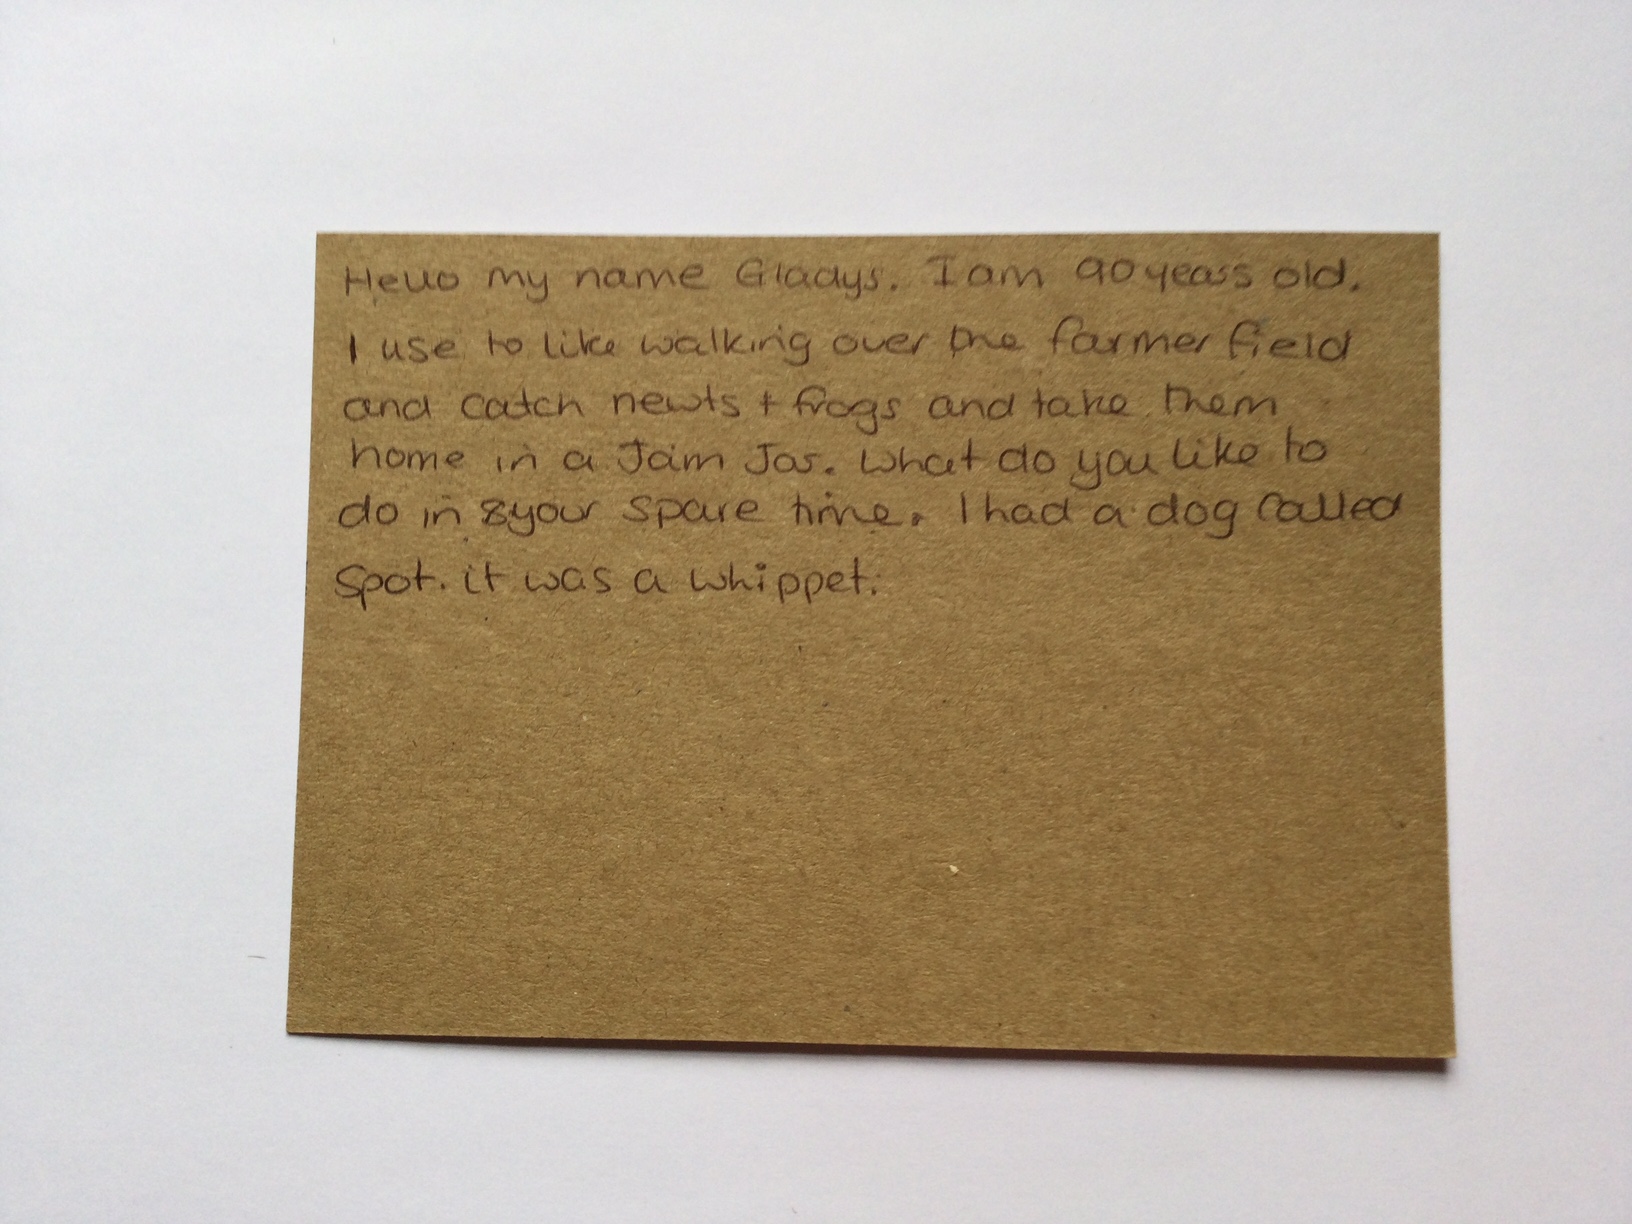 Hello my name Gladys. I am 90 years old.
I use to like walking over the farmer field
and catch newts + frogs and take them
home in a Jam Jar. What do you like to
do in your spare time. I had a dog called
Spot. it was a whippet.